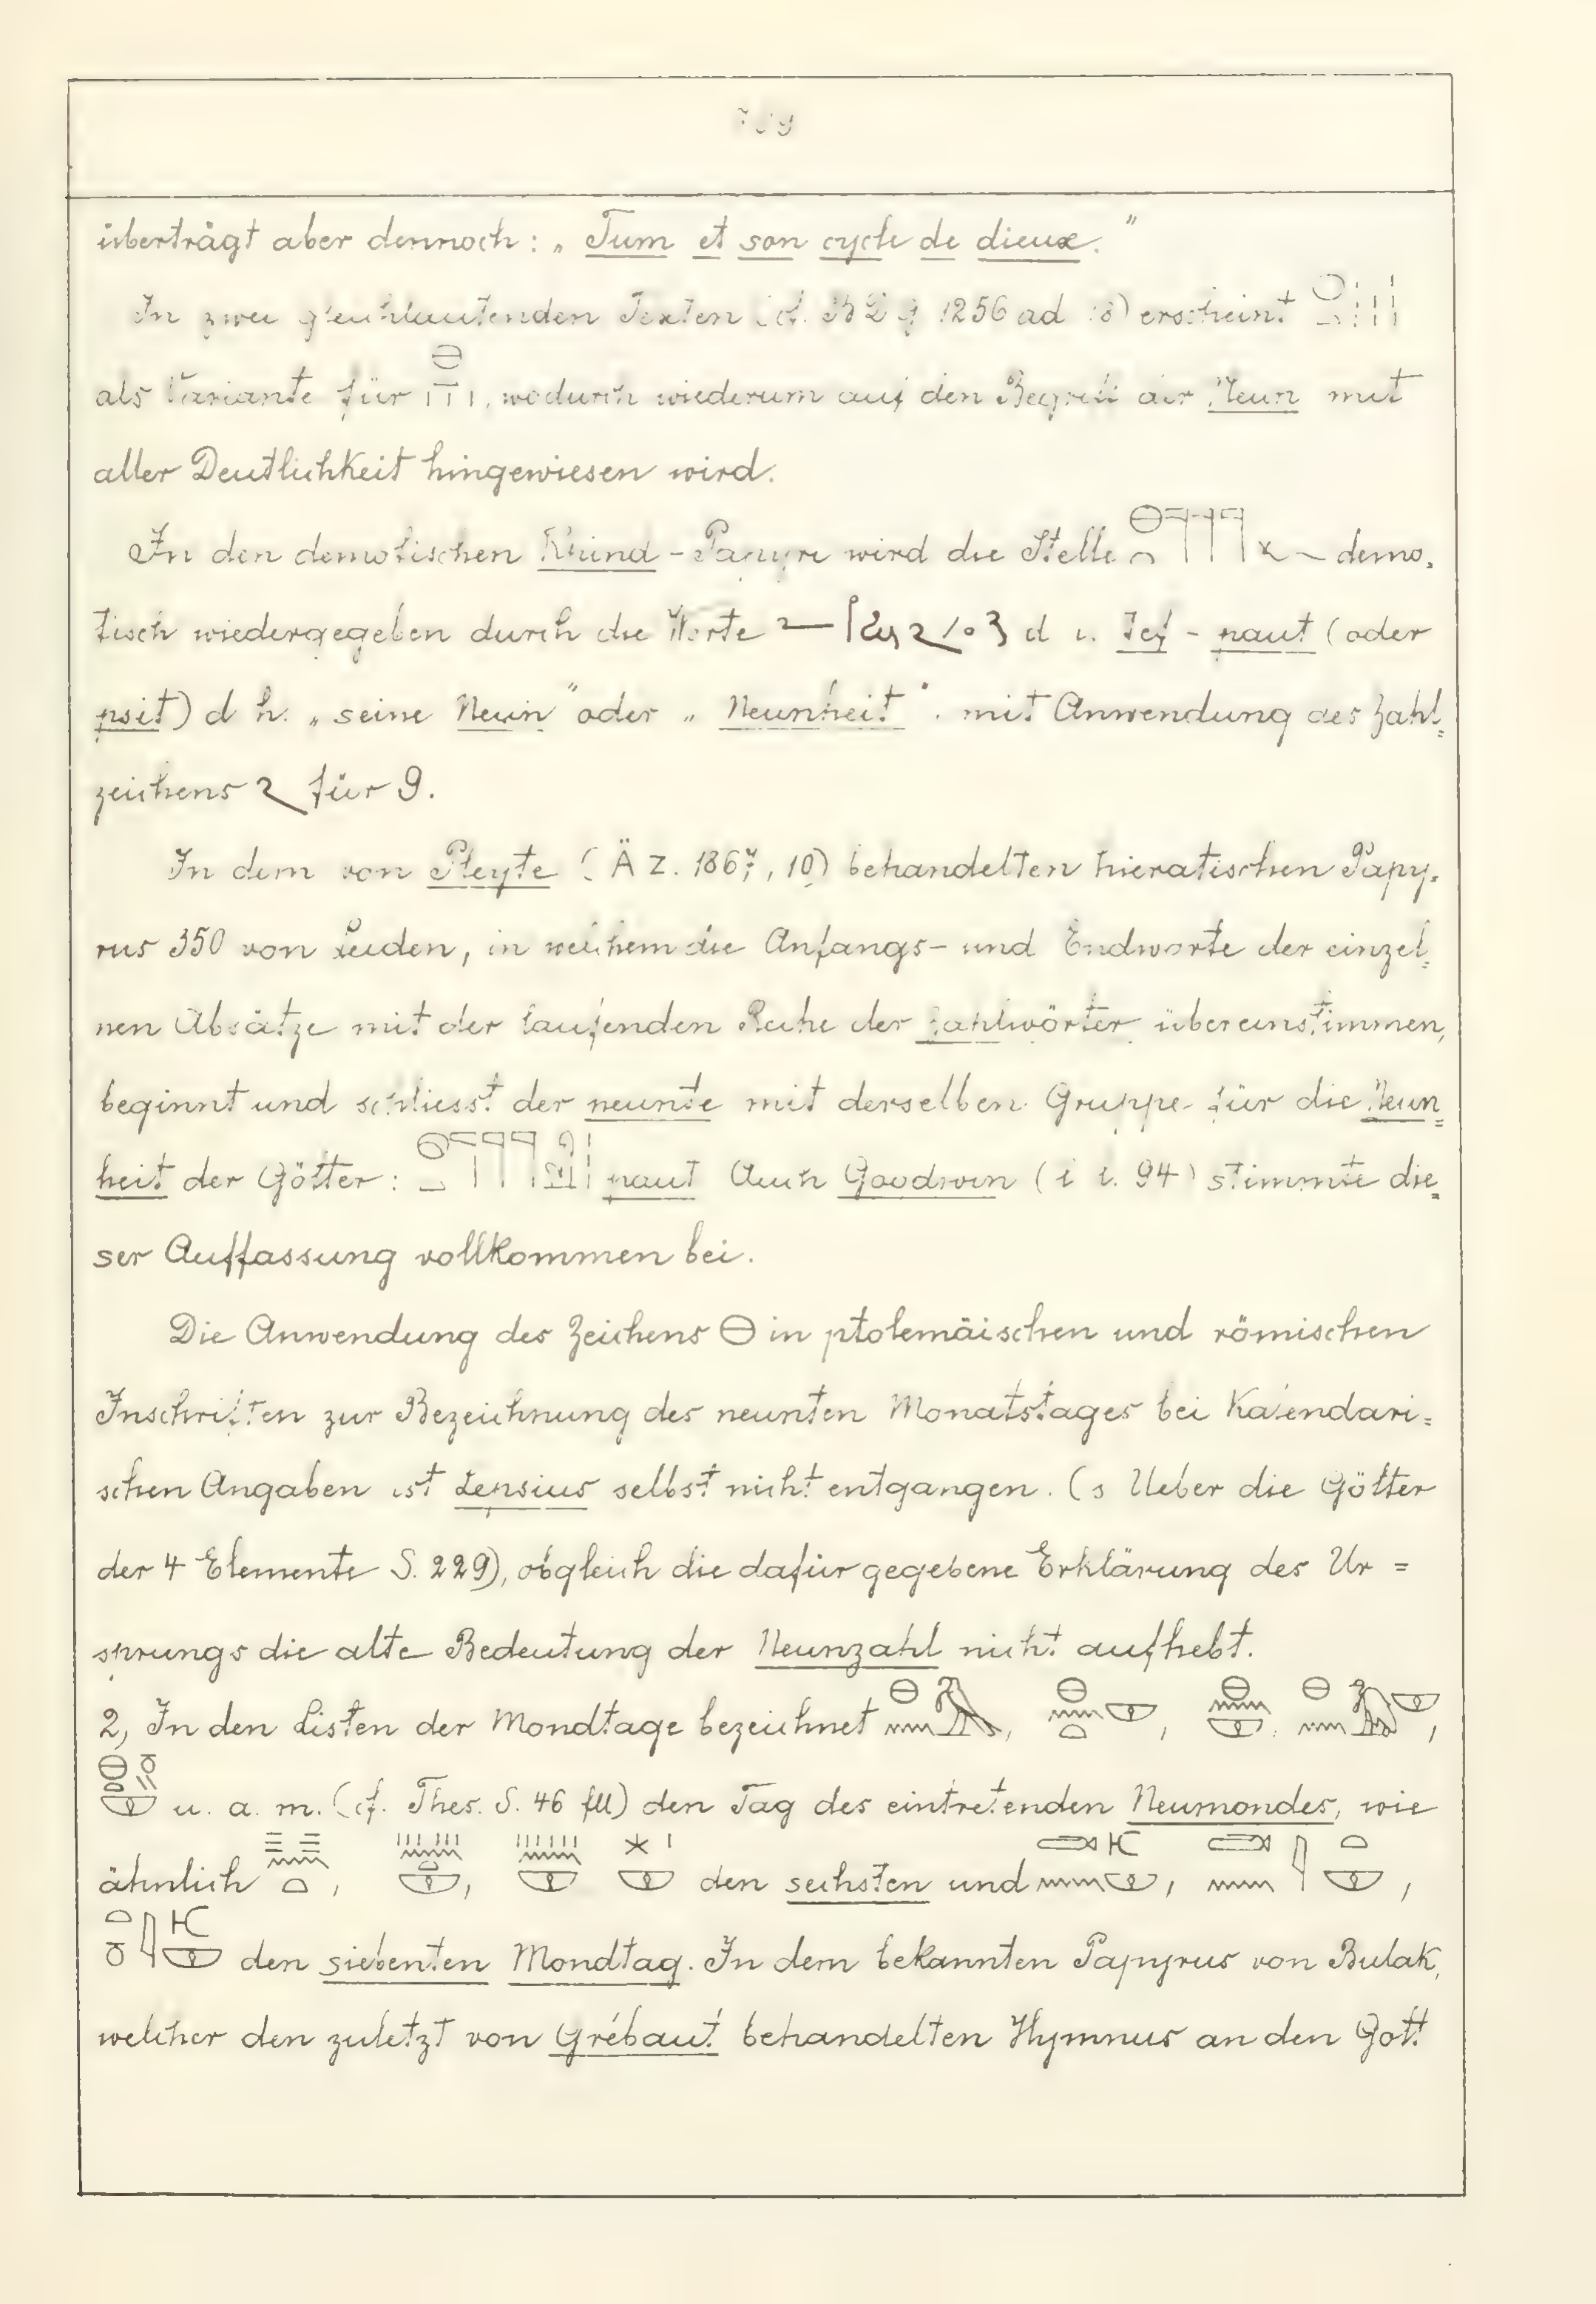 überträgt aber dennoch: „Tum et son cycle de dieux."
In zwei gleichlautenden Texten (cf. 1256 ad 18) erscheint
als Variante für, wodurch wiederum auf den Begriff der Neun mit
aller Deutlichkeit hingewiesen wird.
In den demotischen Rhind-Papyri wird die Stelle demo-
tisch wiedergegeben durch die Worte d i. - naut (oder
psit) d h. „seine Neun" oder „Neunheit". mit Anwendung des Zahl=
zeichens für 9.
In dem von Pleyte (ÄZ. 1867, 10) behandelten hieratischen Papy-
rus 350 von Leiden, in welchem die Anfangs- und Endworte der einzel=
nen Absätze mit der laufenden Reihe der Zahlwörter übereinstimmen,
beginnt und schliesst der neunte mit derselben Gruppe für die Neun=
heit der Götter: naut Auch Goodwin (94) stimmte die=
ser Auffassung vollkommen bei.
Die Anwendung des Zeichens in ptolemäischen und römischen
Inschriften zur Bezeichnung des neunten Monatstages bei Kalendari=
schen Angaben ist Lepsius selbst nicht entgangen. (s Ueber die Götter
der 4 Elemente S. 229), obgleich die dafür gegebene Erklärung des Ur=
sprungs die alte Bedeutung der Neunzahl nicht aufhebt.
2, In den Listen der Mondtage bezeichnet
u. a. m. (cf. Thes. S. 46 fll) den Tag des eintretenden Neumondes, wie
ähnlich den sechsten und
den siebenten Mondtag. In dem bekannten Papyrus von Bulak,
welcher den zuletzt von Grébaut behandelten Hymnus an den Gott